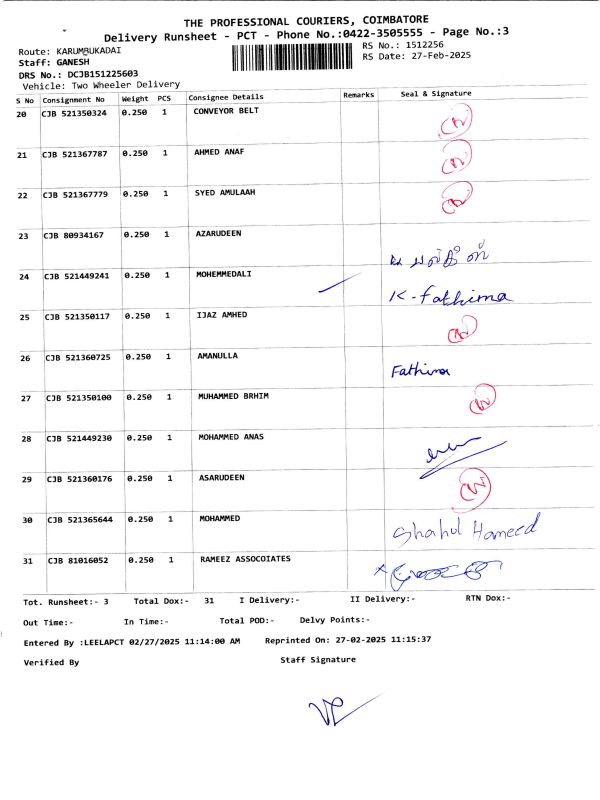 THE PROFESSIONAL COURIERS, COIMBATORE
Delivery Runsheet - PCT - Phone No.:0422-3505555 - Page No.:3
Route: KARUMBUKADAI
RS No.: 1512256
Staff: GANESH
RS Date: 27-Feb-2025
DRS No.: DCJB151225603
Vehicle: Two Wheeler Delivery
S No Consignment No Weight PCS Consignee Details Remarks Seal & Signature
20 CJB 521350324 0.250 1 CONVEYOR BELT
21 CJB 521367787 0.250 1 AHMED ANAF
22 CJB 521367779 0.250 1 SYED AMULAAH
23 CJB 80934167 0.250 1 AZARUDEEN
24 CJB 521449241 0.250 1 MOHEMMEDALI K-Fathima
25 CJB 521350117 0.250 1 IJAZ AMHED
26 CJB 521360725 0.250 1 AMANULLA Fathima
27 CJB 521350100 0.250 1 MUHAMMED BRHIM
28 CJB 521449230 0.250 1 MOHAMMED ANAS
29 CJB 521360176 0.250 1 ASARUDEEN
30 CJB 521365644 0.250 1 MOHAMMED Shahul Hameed
31 CJB 81016052 0.250 1 RAMEEZ ASSOCOIATES
Tot. Runsheet:- 3 Total Dox:- 31 I Delivery:- II Delivery:- RTN Dox:-
Out Time:- In Time:- Total POD:- Delvy Points:-
Entered By :LEELAPCT 02/27/2025 11:14:00 AM Reprinted On: 27-02-2025 11:15:37
Verified By Staff Signature